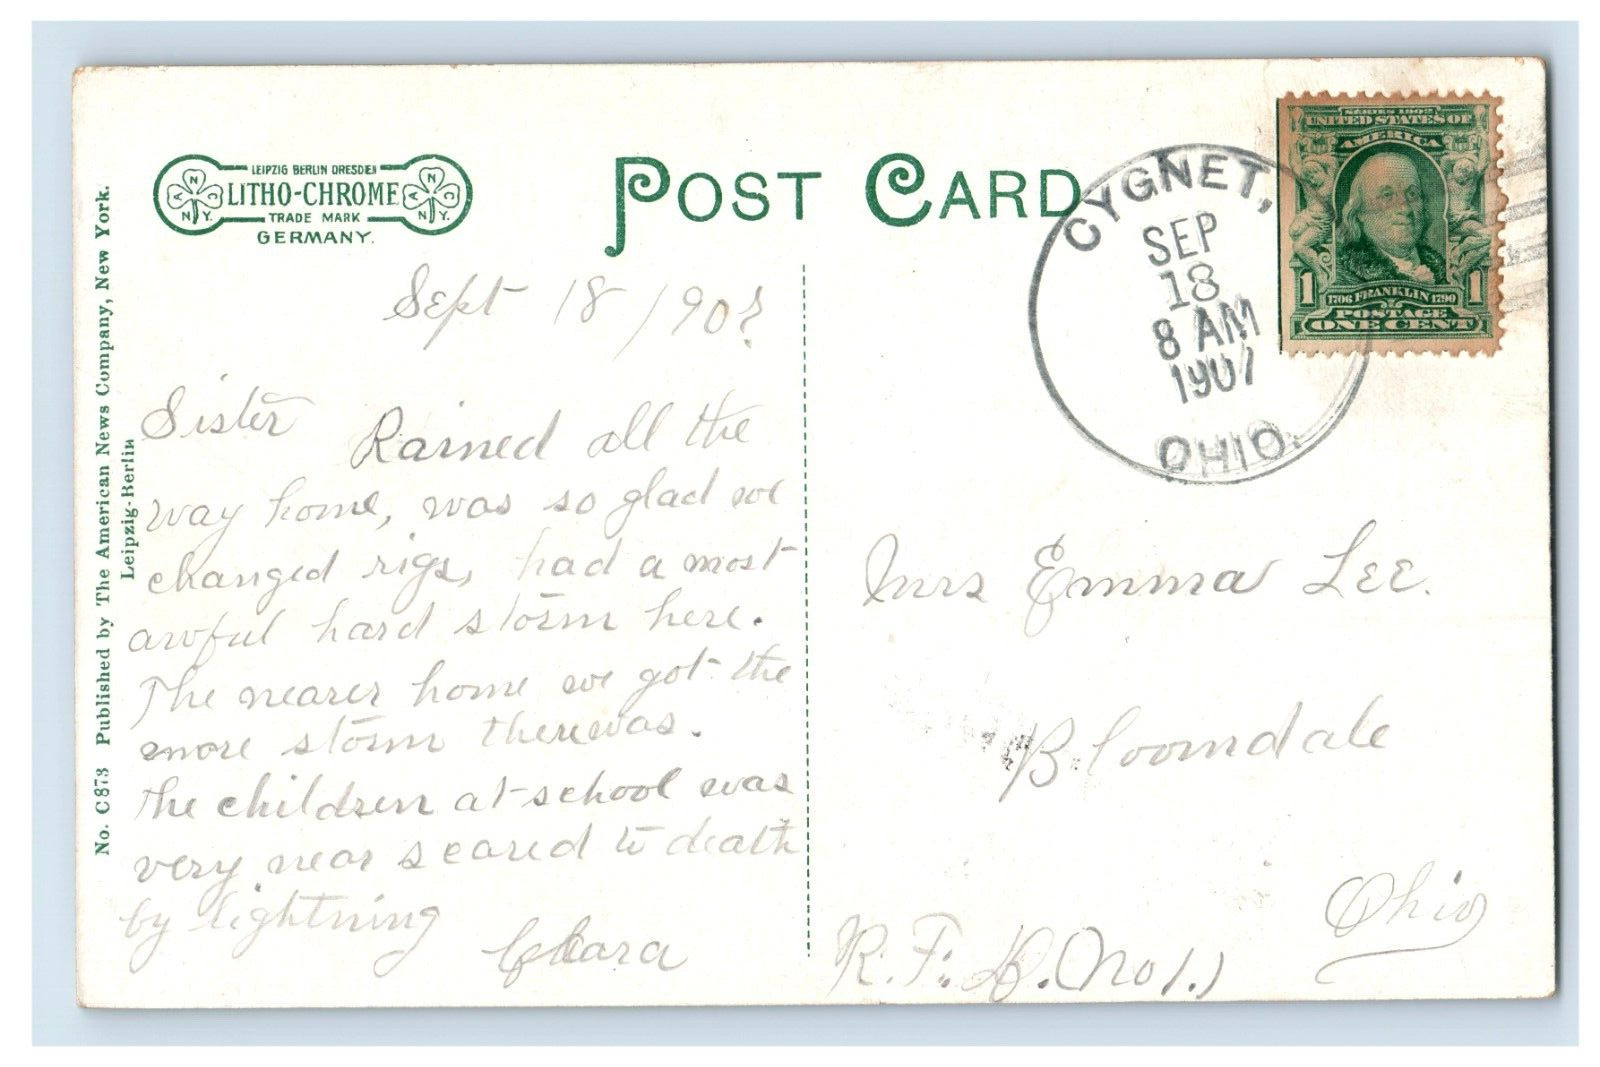 LEIPZIG BERLIN DRESDEN
LITHO-CHROME
TRADE MARK
GERMANY.
N A C N.Y.
N A C N.Y.
POST CARD
CYGNET,
SEP
18
8 AM
1907
OHIO.
SERIES 1902
UNITED STATES OF
AMERICA
1 1
1706 FRANKLIN 1790
POSTAGE
ONE CENT
No. C873 Published by The American News Company, New York.
Leipzig-Berlin
Sept 18/1907
Sister
Rained all the
way home, was so glad we
changed rigs, had a most
awful hard storm here.
The nearer home we got the
more storm there was.
The children at school was
very near scared to death
by lightning
Clara
Mrs Emma Lee.
Bloomdale
Ohio
R.F.D. (No 1.)